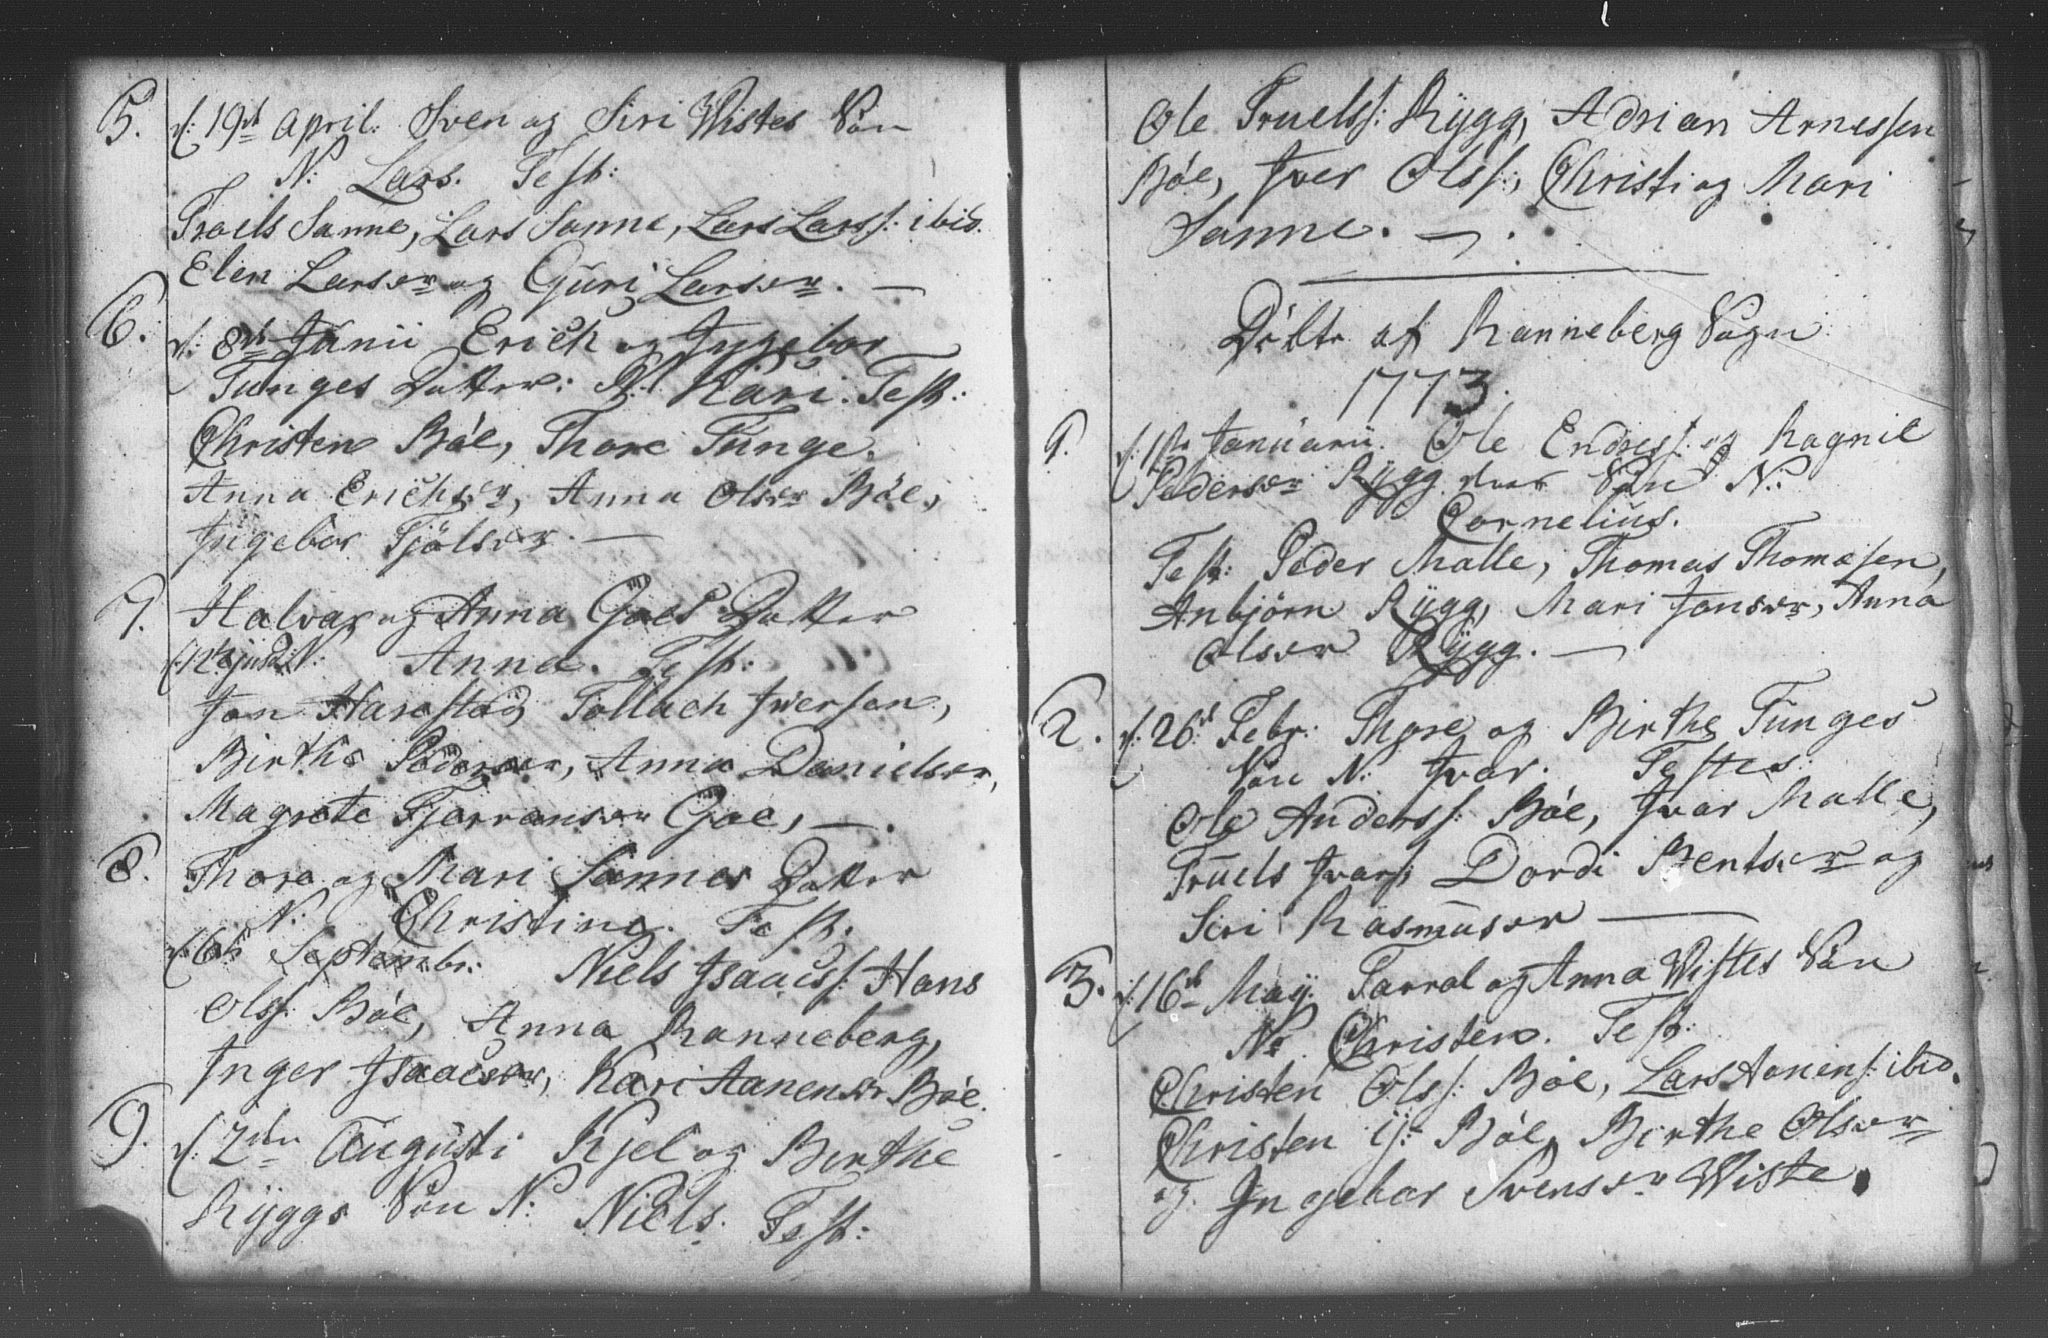 5. d: 19de April: Sven og Siri Wistes Søn
N: Lars. Test:
Troels Sanne, Lars Sanne, Lars Larss: ibid.
Elen Larser og Guri Larser. —
6. d: 8de Junii Erich og Jngebor
Tunges Datter: N: Kari. Test:
Christen Bøe, Thore Tunge,
Anna Erichser, Anna Olser Bøe,
Jngebor Tjølser. —
7. Halvar og Anna Goes Datter
d: 12te N: Anna. Test:
Jon Harestad, Tollach Jversen,
Birthe Pederser, Anna Danielser,
Magrete Tjerranser Goe, —.
8. Thore og Mari Sannes Datter
N: Christine. Test:
d: 6te Septembr: Niels Jsaacs: Hans
Olss: Bøe, Anna Ranneberg,
Jnger Jsaacser, Kari Aanenser Bøe.
9. d: 2den Augusti Kjel og Birthe
Ryggs Søn N: Niels. Test:
Ole Truelss: Rygg, Adrian Arnessen
Bøe, Jver Olss:, Christi og Mari
Sanne. —.
Døbte af Ranneberg Sogn
1773.
1. d: 1ste Januarii. Ole Endress: og Ragnil
Pederser Rygg deres Søn N:
Cornelius.
Test: Peder Malle, Thomas Thomæsen,
Anbjörn Rygg, Mari Janser, Anna
Olser Rygg. —
2. d: 26de Febr: Thore og Birthe Tunges
Søn N: Jvar. Testes:
Ole Anderss: Bøe, Jvar Malle,
Truels Jvars: Dordi Bentser og
Siri Rasmuser —
3. d: 16de May. Tarral og Anna Wistes Søn
N: Christen. Test:
Christen Olss: Bøe, Lars Aanens: ibid.
Christen ij: Bøe, Birthe Olser
og Jngebor Svenser Wiste.